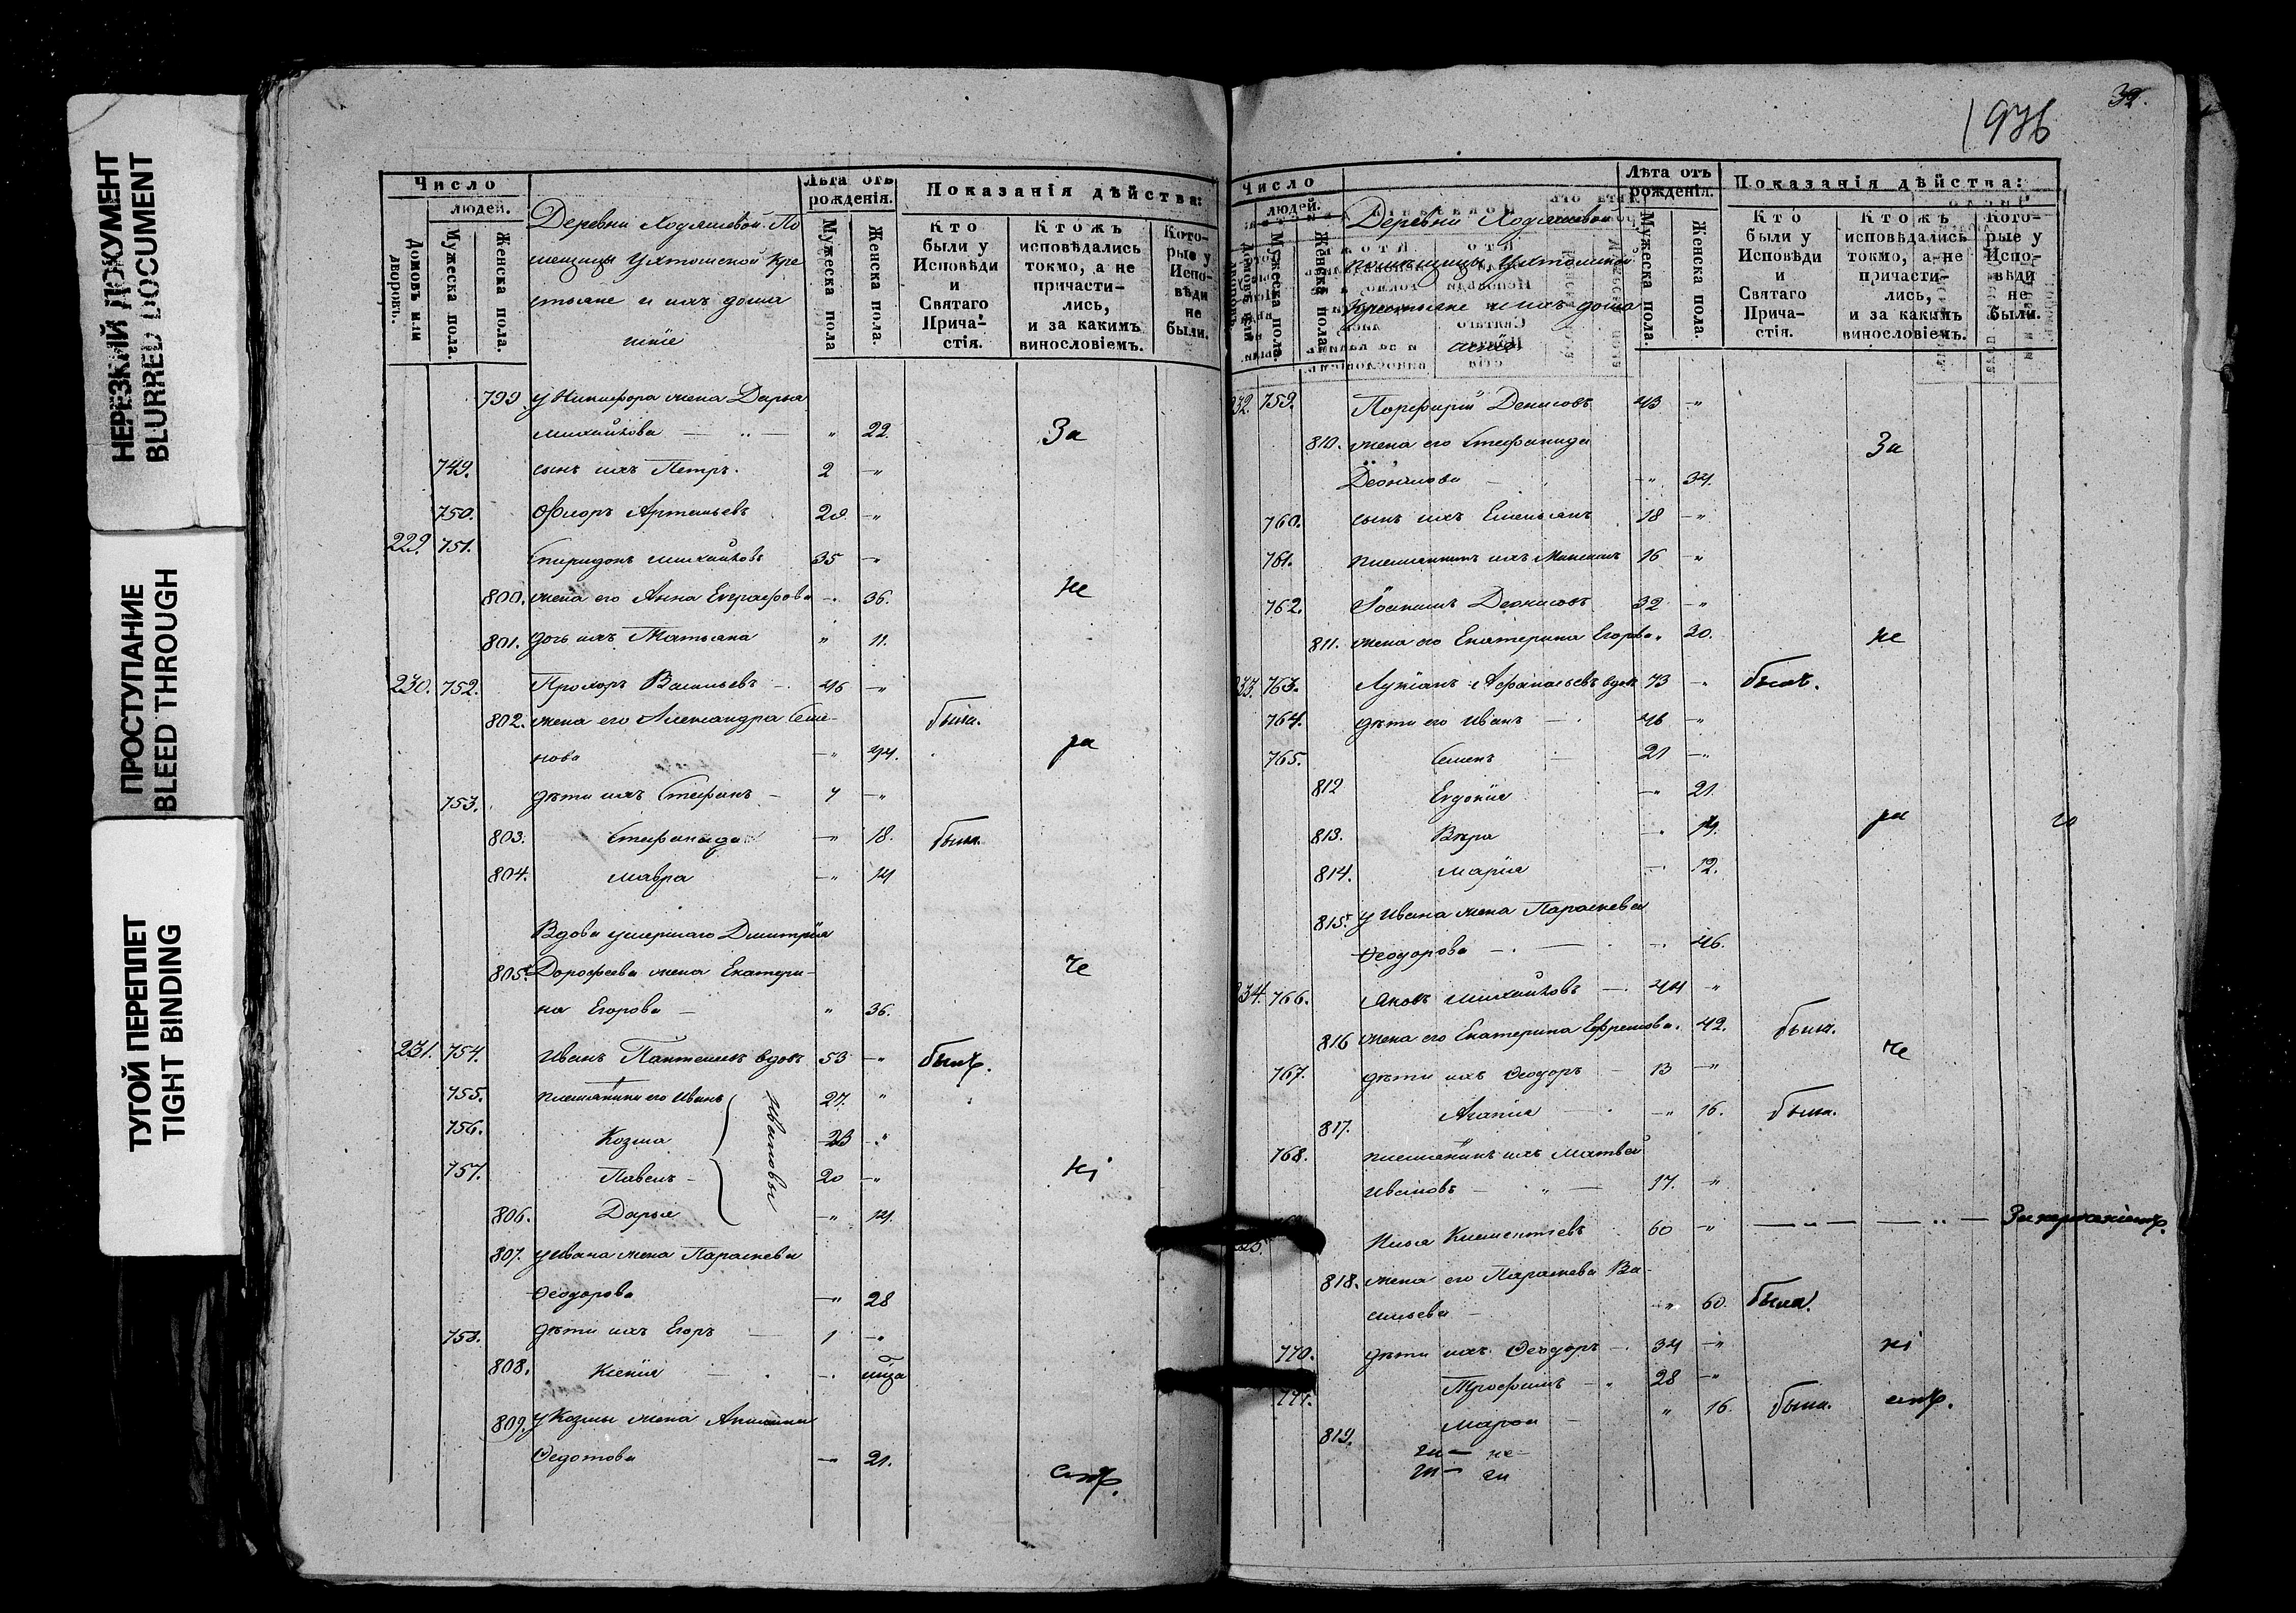 НЕРЕЗКИЙ ДОКУМЕНТ
BLURRED DOCUMENT
ПРОСТУПАНИЕ
BLEED THROUGH
ТУГОЙ ПЕРЕПЛЕТ
TIGHT BINDING
Число
людей.
Домовъ или дворовъ.
Мужеска пола.
Женска пола.
Деревни Ходяшевой По
мещицы Ухтомской кре
стьяне и ихъ дома
шніе
Лѣта отъ рожденія.
Мужеска пола
Женска пола.
Показанія дѣйства:
Кто были у Исповѣди и Святаго Причастія.
Ктожъ исповѣдались токмо, а не причастились, и за какимъ винословіемъ.
Которые у Исповѣди не были.
799 у Никифора жена Дарья
Михайлова 22. За
749. сынъ ихъ Петръ. 2
750. Флоръ Артемьевъ 28
229. 751. Спиридонъ Михайловъ 35
800. жена его Анна Евграфова 36. не
801. дочь ихъ Татьяна 11.
230. 752. Прохоръ Васильевъ 46
802. жена его Александра Семе- была.
нова 44. ра
753. дѣти ихъ Стефанъ 7
803. Стефанида 18. была
804. Мавра 14
Вдова умершаго Дмитрія
805. Дорофеева жена Екатери- че
на Егорова 36.
231. 754. Иванъ Пантелеевъ вдовъ 53 былъ.
755. племянники его Иванъ 27.
756. Козма 23
757. Павелъ 20 ні
Ивановы
806. Дарья 14
807. у Ивана жена Параскева
Ѳеодорова 28
758. дѣти ихъ Егоръ 1
808. Ксенія
809. у Козмы жена Акилина
Ѳедотова 21. емъ.
1936
39.
Число
людей.
Мужеска пола.
Женска пола.
Деревни Ходяшевой
помѣщицы Ухтомской
Крестьяне и ихъ дома
шніе
Лѣта отъ рожденія.
Мужеска пола.
Женска пола.
Показанія дѣйства:
Кто были у Исповѣди и Святаго Причастія.
Ктожъ исповѣдались токмо, а не причастились, и за какимъ винословіемъ.
Которые у Исповѣди не были.
232. 759. Порфирій Денисовъ 43
810. жена его Стефанида За
34.
760. сынъ ихъ Емельянъ 18
761. племянникъ ихъ 16
762. Іоакимъ Деонисовъ 32
811. жена его Екатерина Егорова 30. не
233. 763. Лукіанъ Афанасьевъ вдов 73 былъ.
764. дѣти его Иванъ 46
765. Семенъ 21
812 Евдокія 21
813. Вѣра 14. ра
814. Марія 12.
815. у Ивана жена Параскева
Ѳеодорова 46.
234. 766. Яковъ Михайловъ 44
816 жена его Екатерина Ефремова. 42. была.
че
767. дѣти ихъ Ѳеодоръ 13
817. Агапія 16. была.
768. племянникъ ихъ Матвей
Ивановъ 17.
Илья Климентьевъ 60
818. жена его Параскева Ва-
сильева 60. была.
770. дѣти ихъ Ѳеодоръ 34 ні
771. Трофимъ 28
819. Марфа 16. была. емъ.